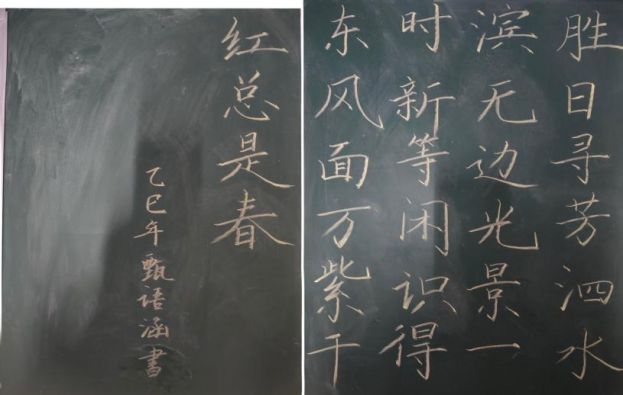 胜日寻芳泗水
滨无边光景一
时新等闲识得
东风面万紫千
红总是春
乙巳年甄语涵书